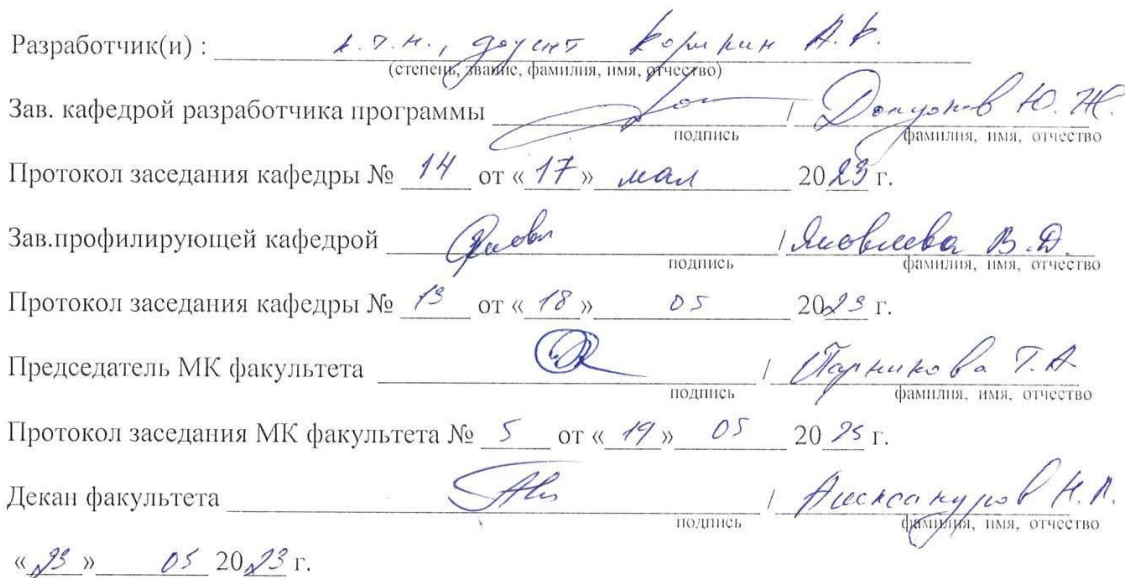 Разработчик(и) : к.т.н., доцент А.
(степень, звание, фамилия, имя, отчество)
Зав. кафедрой разработчика программы / Ю. Ж.
подпись фамилия, имя, отчество
Протокол заседания кафедры № 14 от « 17 » мая 2023 г.
Зав.профилирующей кафедрой / Яковлева В.Д.
подпись фамилия, имя, отчество
Протокол заседания кафедры № 13 от « 18 » 05 2023 г.
Председатель МК факультета / Парникова Т.А
подпись фамилия, имя, отчество
Протокол заседания МК факультета № 5 от « 19 » 05 20 г.
Декан факультета / Александров Н.П.
подпись фамилия, имя, отчество
« 23 » 05 2023 г.